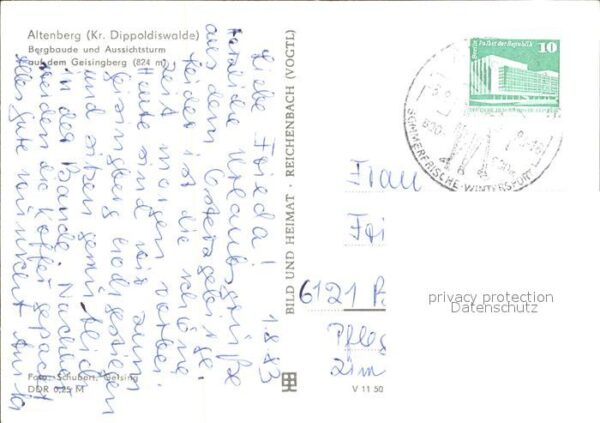 Altenberg (Kr. Dippoldiswalde)
Bergbaude und Aussichtsturm
auf dem Geisingberg (824 m)
1.8.83
Liebe Frieda!
Herzliche Urlaubsgrüße
aus dem Osterzgebirge.
Leider ist die schöne
Zeit morgen vorbei.
Heute sind wir zum
Geisingberg hochgestiegen
und sitzen gemütlich
in der Baude. Nachher
werden die Koffer gepackt
Alles gute wünscht Anita
Foto: Schubert, Geising
DDR 0,25 M
BILD UND HEIMAT · REICHENBACH (VOGTL)
V 11 50
Berlin, Palast der Republik
10
SOMMERFRISCHE · WINTERSPORT
Frau
6121
Pfleg
Zim
privacy protection
Datenschutz